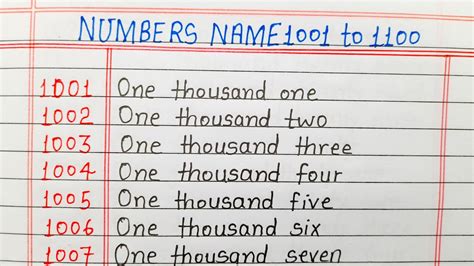 NUMBERS NAME 1001 to 1100
1001 One thousand one
1002 One thousand two
1003 One thousand three
1004 One thousand four
1005 One thousand five
1006 One thousand six
1007 One thousand seven